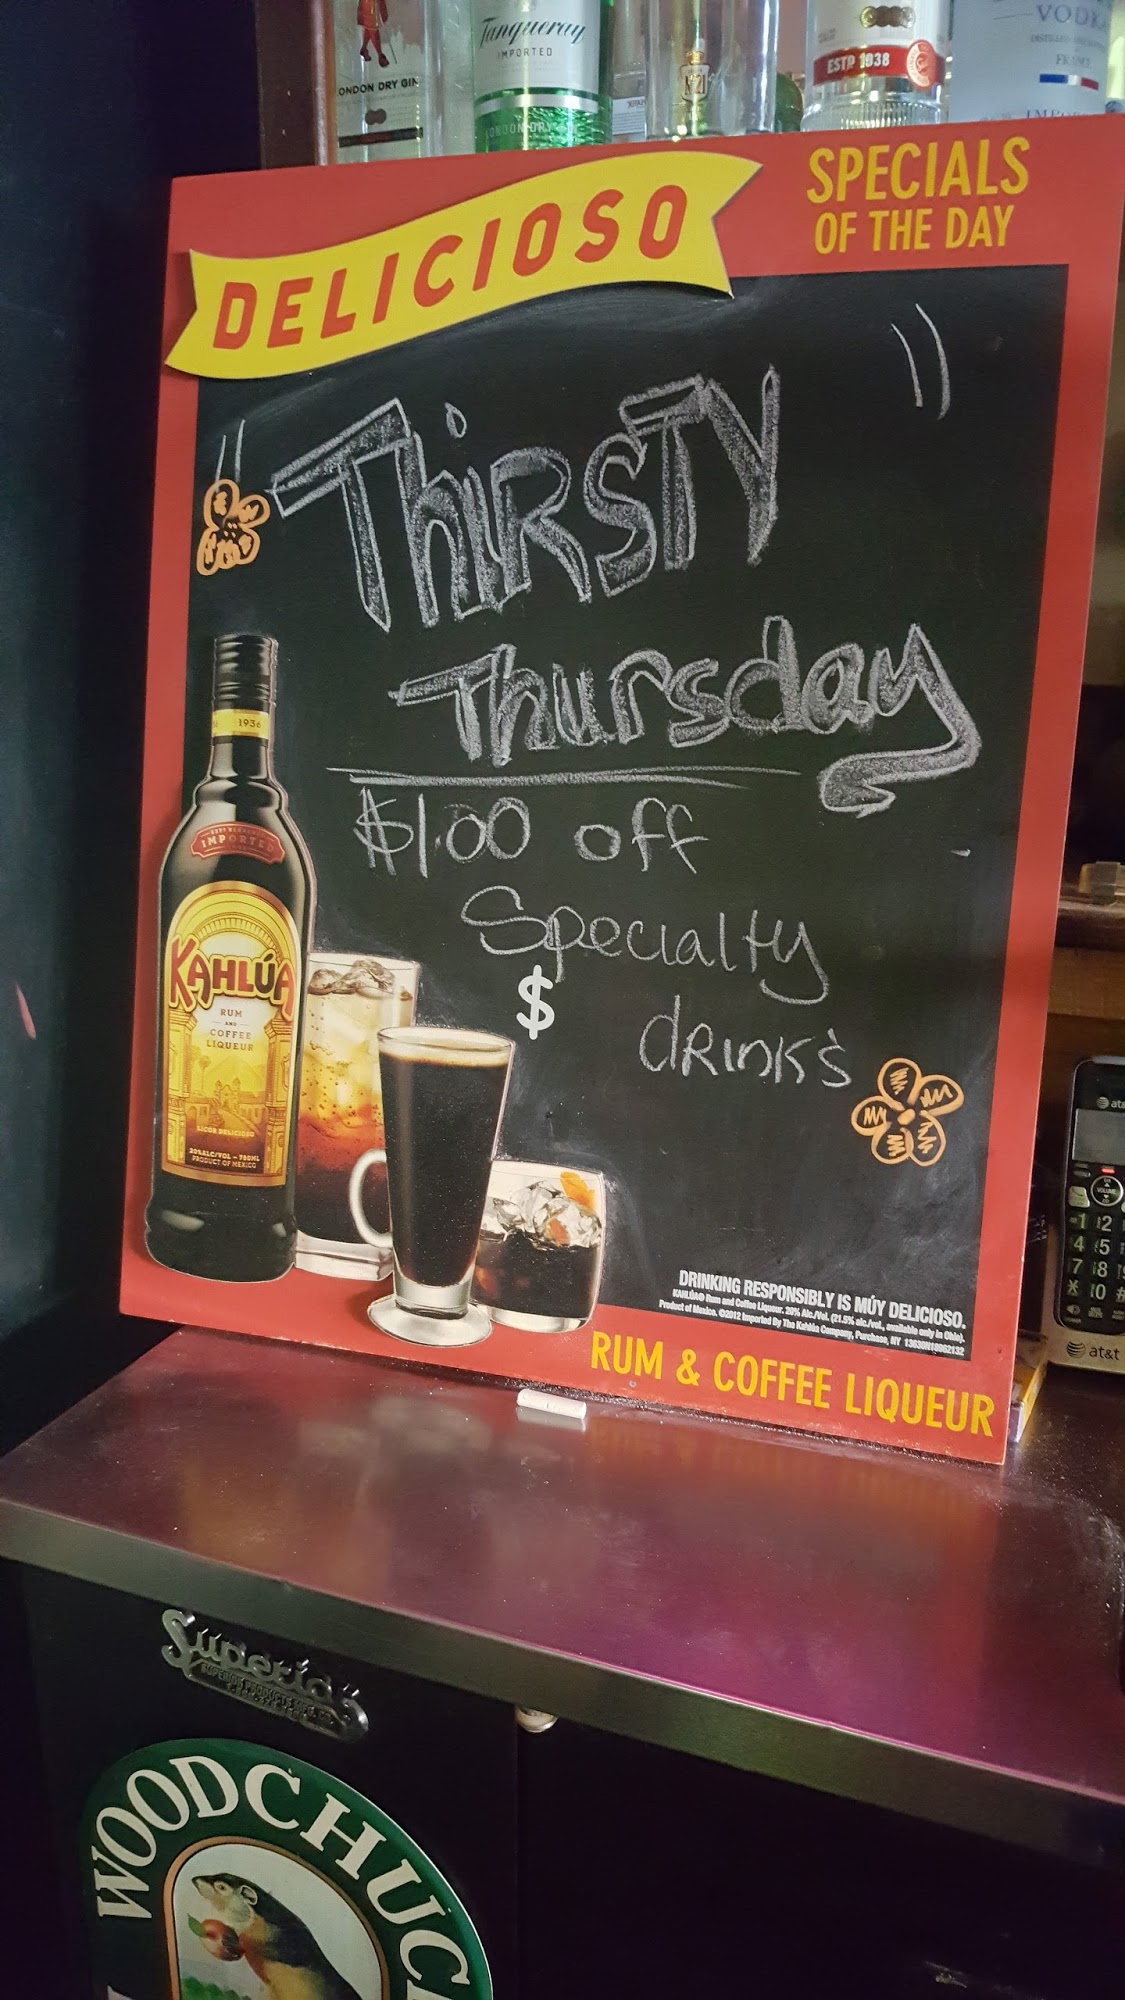 LONDON DRY GIN
Tanqueray
IMPORTED
LONDON DRY
Nº21
ESTD 1938
VODKA
FRANCE
DELICIOSO
SPECIALS
OF THE DAY
"Thirsty"
Thursday
$1.00 off
Specialty
$
drinks
1936
IMPORTED
KAHLÚA
RUM
AND
COFFEE
LIQUEUR
LICOR DELICIOSO
20%ALC/VOL – 750ML
PRODUCT OF MEXICO
DRINKING RESPONSIBLY IS MÚY DELICIOSO.
KAHLÚA® Rum and Coffee Liqueur. 20% Alc./Vol. (21.5% alc./vol., available only in Ohio).
Product of Mexico. ©2012 Imported By The Kahlúa Company, Purchase, NY 13630N10062132
RUM & COFFEE LIQUEUR
at&t
1 2
4 5
7 8 9
* 0 #
at&t
Superior
SUPERIOR PRODUCTS MFG. CO.
WOODCHUC